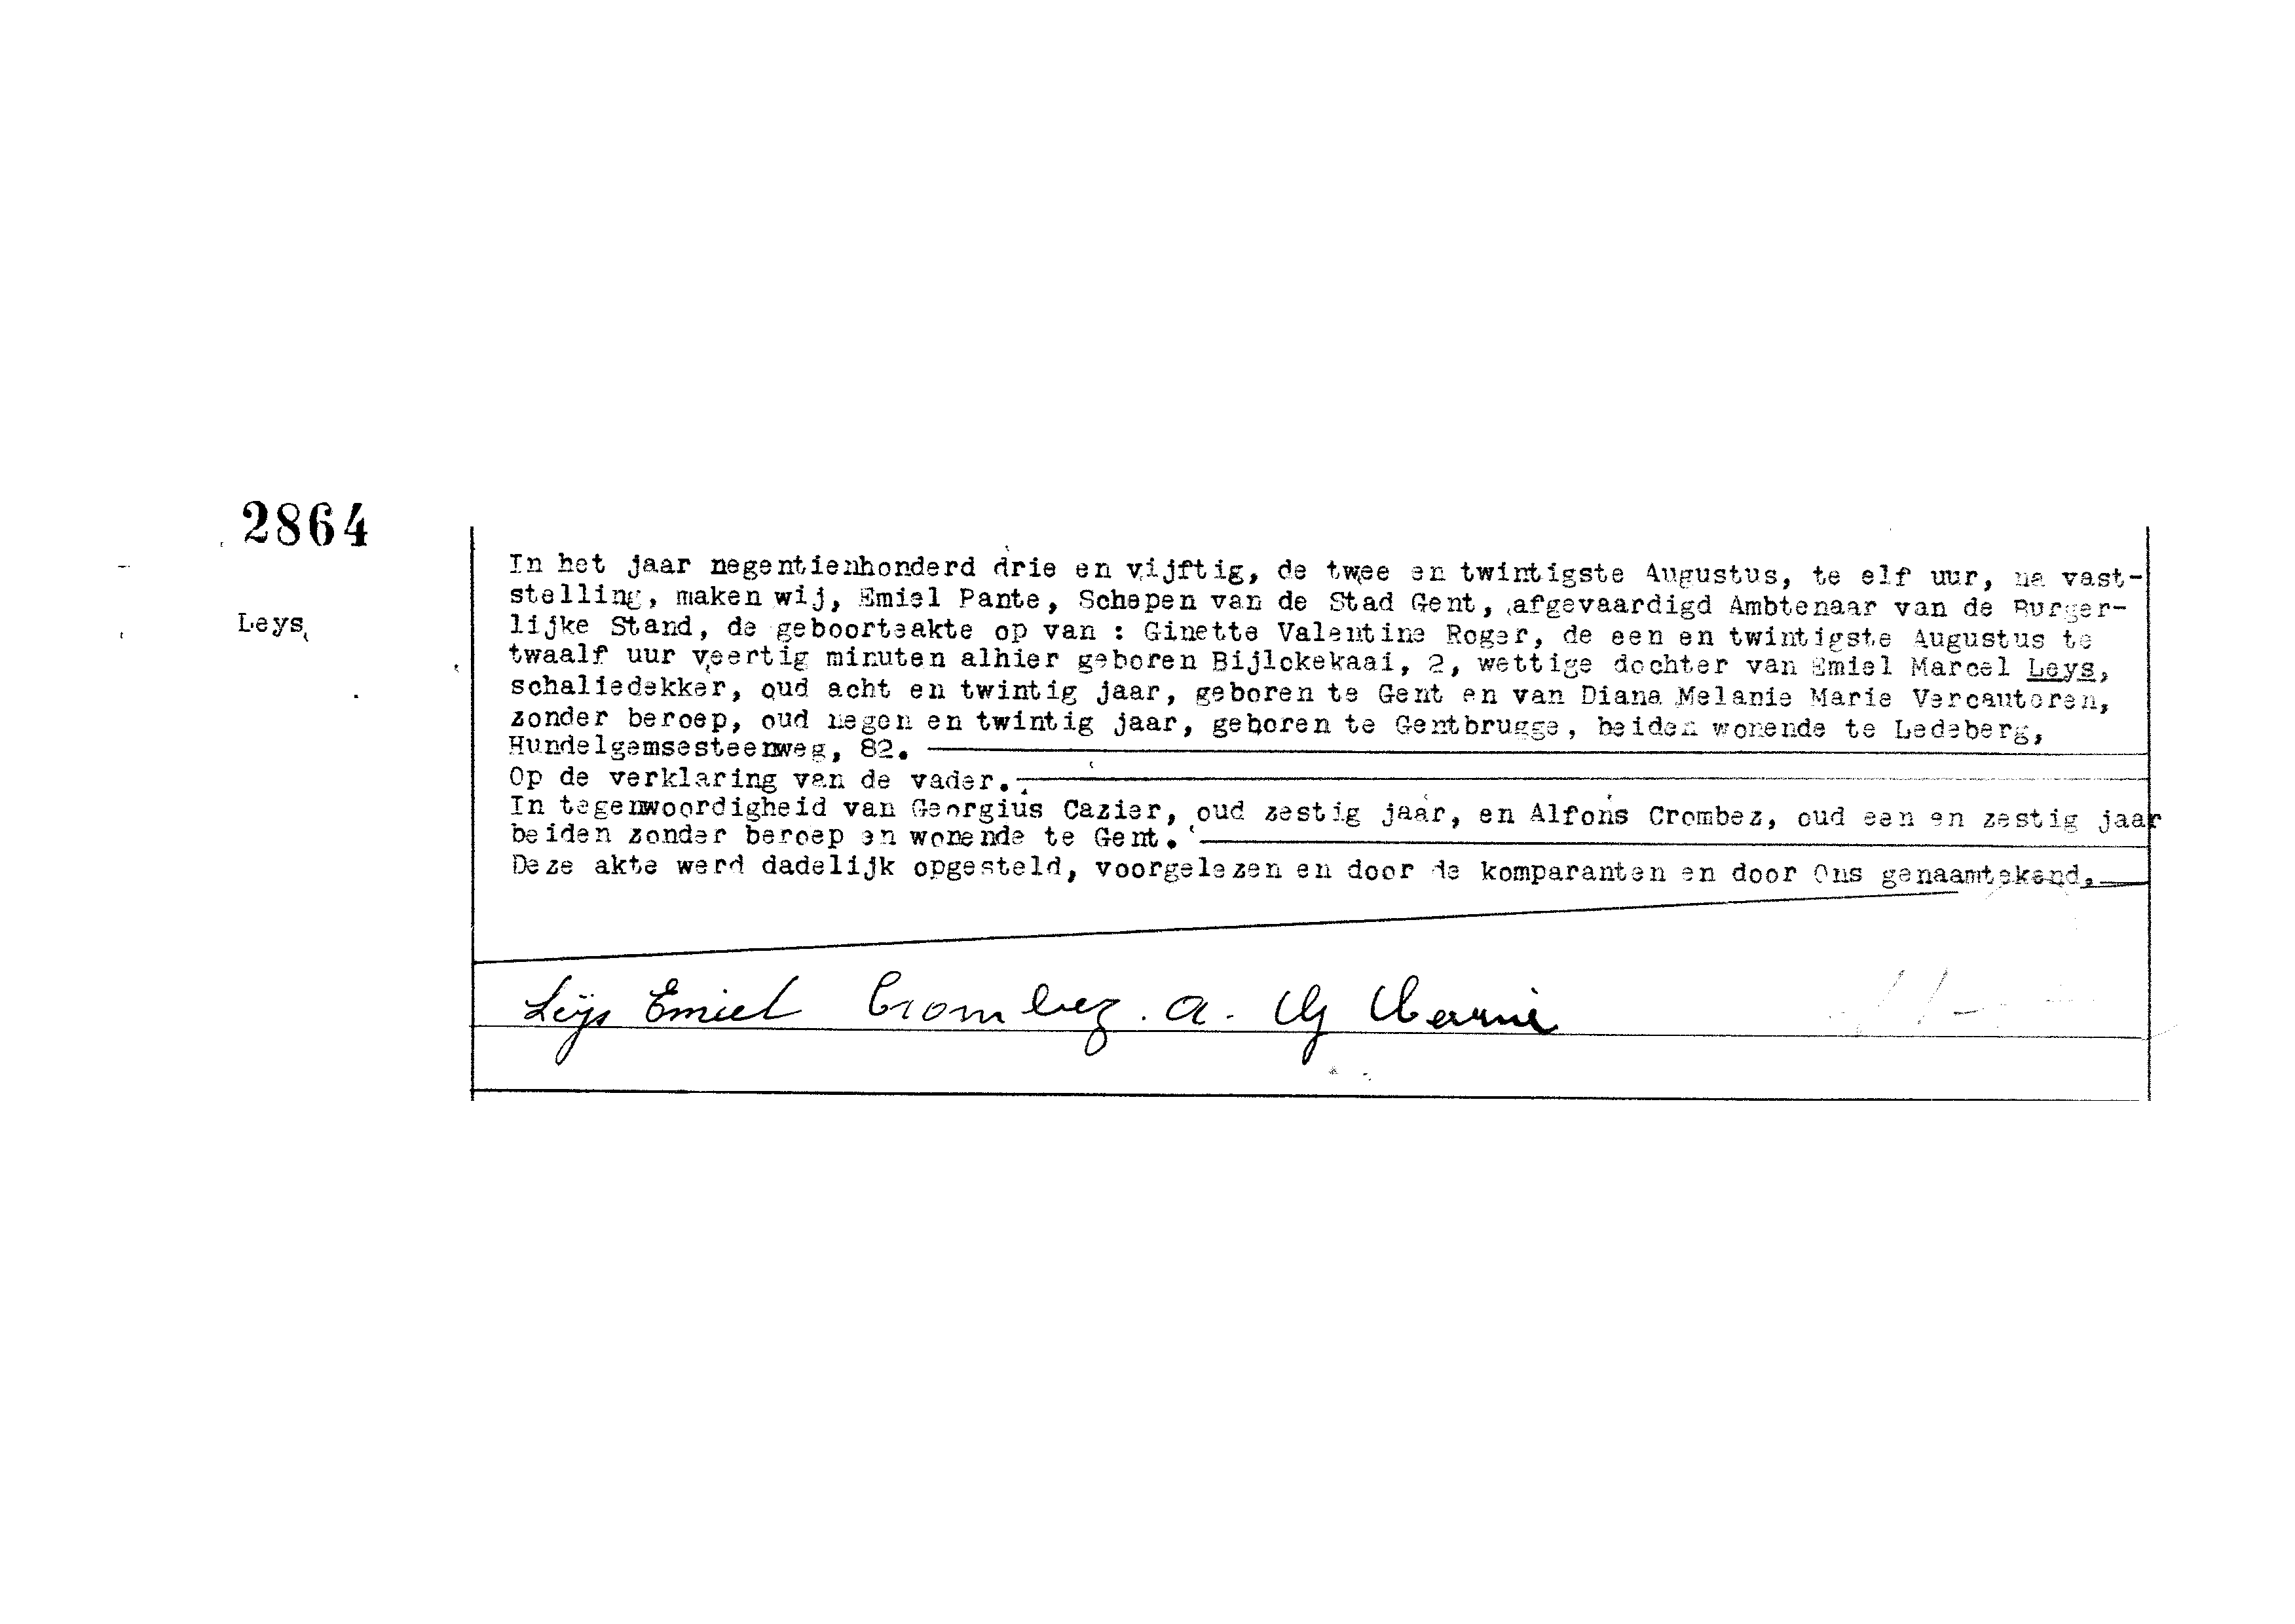 2864
Leys
In het jaar negentienhonderd drie en vijftig, de twee en twintigste Augustus, te elf uur, na vast-
stelling, maken wij, Emiel Pante, Schepen van de Stad Gent, afgevaardigd Ambtenaar van de Burger-
lijke Stand, de geboorteakte op van : Ginette Valentine Roger, de een en twintigste Augustus te
twaalf uur veertig minuten alhier geboren Bijlokekaai, 2, wettige dochter van Emiel Marcel Leys,
schaliedekker, oud acht en twintig jaar, geboren te Gent en van Diana Melanie Marie Vercauteren,
zonder beroep, oud negen en twintig jaar, geboren te Gentbrugge, beiden wonende te Ledeberg,
Hundelgemsesteenweg, 82.
Op de verklaring van de vader.
In tegenwoordigheid van Georgius Cazier, oud zestig jaar, en Alfons Crombez, oud een en zestig jaar
beiden zonder beroep en wonende te Gent.
Deze akte werd dadelijk opgesteld, voorgelezen en door de komparanten en door Ons genaamtekend.
Leÿs Emiel Crombez. a.